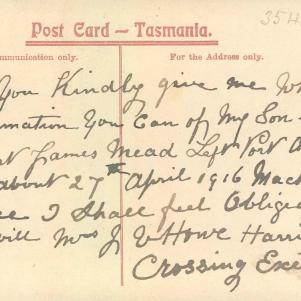 354
Post Card – Tasmania.
mmunication only. For the Address only.
You Kindly give me Wh
rmation You Can of My Son
James Mead Left Port A
about 27th April 1916 Mach
I Shall feel Obliged
will Mrs J V Howe Harri
Crossing Exe